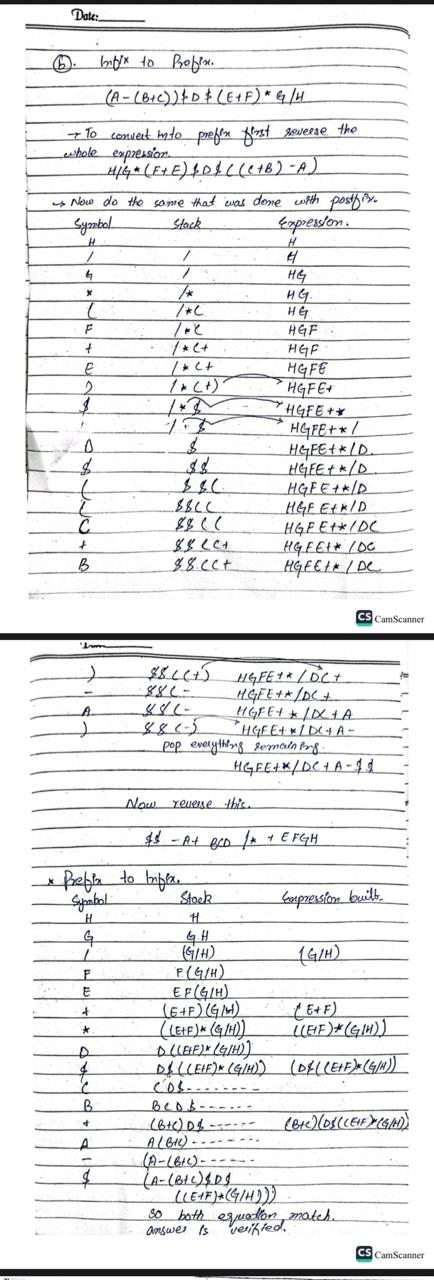 Date:
(b). Infix to Prefix.
(A-(B+C))$D$(E+F)*G/H
→ To convert into prefix first reverse the
whole expression.
H/G*(F+E)$D$((C+B)-A)
→ Now do the same that was done with postfix.
Symbol Stack Expression.
H H
/ / H
G / HG
* /* HG
( /*( HG
F /*( HGF
+ /*(+ HGF
E /*(+ HGFE
) /*(+) HGFE+
$ /*$ HGFE+*
/ $ HGFE+*/
D $ HGFE+*/D
$ $$ HGFE+*/D
( $$( HGFE+*/D
( $$(( HGFE+*/D
C $$(( HGFE+*/DC
+ $$((+ HGFE+*/DC
B $$((+ HGFE+*/DC
CS CamScanner
) $$((+) HGFE+*/DC+
- $$(- HGFE+*/DC+
A $$(- HGFE+*/DC+A
) $$(-) HGFE+*/DC+A-
pop everything remaining.
HGFE+*/DC+A-$$
Now reverse this.
$$ -A+ BCD /* + EFGH
* Prefix to Infix.
Symbol Stack Expression built.
H H
G GH
/ (G/H) (G/H)
F F(G/H)
E EF(G/H)
+ (E+F)(G/H) (E+F)
* ((E+F)*(G/H)) ((E+F)*(G/H))
D D((E+F)*(G/H))
$ D$((E+F)*(G/H)) (D$((E+F)*(G/H))
C CD$--------
B BCD$------
+ (B+C)D$------ (B+C)(D$((E+F)*(G/H))
A A(B+C)-------
- (A-(B+C)------
$ (A-(B+C)$D$
((E+F)*(G/H)))
so both equation match.
answer is verified.
CS CamScanner